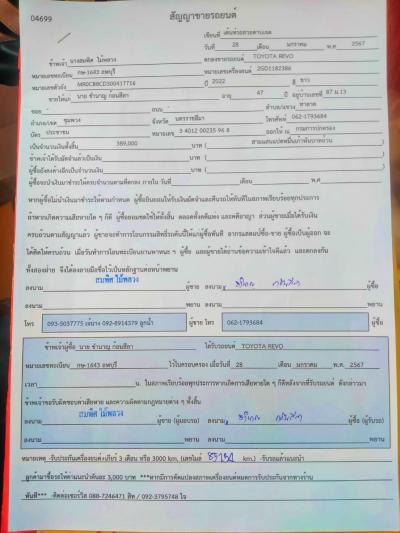 04699
สัญญาขายรถยนต์
เขียนที่ เต็นท์รถสวยตาบเขต
วันที่ 28 เดือน มกราคม พ.ศ. 2567
ข้าพเจ้า นางสมพิศ ไม้พลวง ตกลงขายรถยนต์ TOYOTA REVO
หมายเลขทะเบียน กษ-1643 ลพบุรี หมายเลขเครื่องยนต์ 2GD1182386
หมายเลขตัวถัง MR0CB8CD300417716 ปี 2022 สี ขาว
ขายให้แก่ นาย ชำนาญ ก้อนสีลา อายุ 47 ปี อยู่บ้านเลขที่ 87 ม.13
ซอย - ถนน - ตำบล/แขวง ท่าลาด
อำเภอ/เขต ชุมพวง จังหวัด นครราชสีมา โทรศัพท์ 062-1793684
บัตร ประชาชน หมายเลข 3 4012 00235 96 8 ออกให้ ณ กรมการปกครอง
เป็นจำนวนเงินทั้งสิ้น 389,000 บาท ( สามแสนแปดหมื่นเก้าพันบาทถ้วน )
ข้าพเจ้าได้รับมัดจำแล้วเป็นเงิน บาท ( )
ผู้ซื้อยังคงค้างอีกเป็นจำนวนเงิน บาท ( )
ผู้ซื้อจะนำเงินมาชำระให้ครบจำนวนตามที่ตกลง ภายใน วันที่ เดือน พ.ศ.
หากผู้ซื้อไม่นำเงินมาชำระให้ตามกำหนด ผู้ซื้อยินยอมให้ริบเงินมัดจำและคืนรถให้ทันทีในสภาพเรียบร้อยทุกประการ
หากเกิดความเสียหายใด ๆ ก็ดี ผู้ซื้อยอมชดใช้ให้ทั้งสิ้น ตลอดทั้งคดีแพ่ง และคดีอาญา ส่วนผู้ขายเมื่อได้รับเงิน
ครบถ้วนตามสัญญาแล้ว ผู้ขายจะทำการโอนกรรมสิทธิ์ระดับนี้ให้แก่ผู้ซื้อทันที อากรแสตมป์ซื้อ-ขาย ผู้ซื้อเป็นผู้ออก จะ
ได้คิดให้ครบถ้วน เมื่อวันทำการโอนทะเบียนยานพาหนะ ฯ ผู้ซื้อ และผู้ขายได้อ่านข้อความเข้าใจดีแล้ว และตกลงกัน
ทั้งสองฝ่าย จึงได้ลงลายมือชื่อไว้เป็นหลักฐานต่อหน้าพยาน
ลงนาม สมพิศ ไม้พลวง ผู้ขาย ลงนาม ผู้ซื้อ
ลงนาม พยาน ลงนาม พยาน
โทร 093-5037775 092-8914379 ลูกน้ำ ผู้ขาย โทร 062-1793684 ผู้ซื้อ
ข้าพเจ้าผู้ซื้อ นาย ชำนาญ ก้อนสีลา ได้รับรถยนต์ TOYOTA REVO
หมายเลขทะเบียน กษ-1643 ลพบุรี ไว้ในครอบครอง เมื่อวันที่ 28 เดือน มกราคม พ.ศ. 2567
เวลา น. ในสภาพเรียบร้อยทุกประการหากเกิดการเสียหายใด ๆ ก็ดีหลังจากที่รับรถยนต์ ดังกล่าวมา
ข้าพเจ้าขอรับผิดชอบค่าเสียหาย และความผิดตามกฎหมายต่าง ๆ ทั้งสิ้น
ลงนาม สมพิศ ไม้พลวง ผู้ขาย (ผู้มอบรถ) ลงนาม ผู้ซื้อ (ผู้รับรถ)
ลงนาม พยาน ลงนาม พยาน
หมายเหตุ -รับประกันเครื่องยนต์+เกียร์ 3 เดือน หรือ 3000 km. (เลขไมล์ km.) -รับรถแล้วแนะนำ
ลูกค้ามาซื้อรถให้ค่าแนะนำคันละ 3,000 บาท ***หากมีการดัดแปลงสภาพเครื่องยนต์หมดการรับประกันจากทางร้าน
ทันที*** -ติดต่อเซอร์วิส 088-7246471 สิท / 092-3795748 โจ